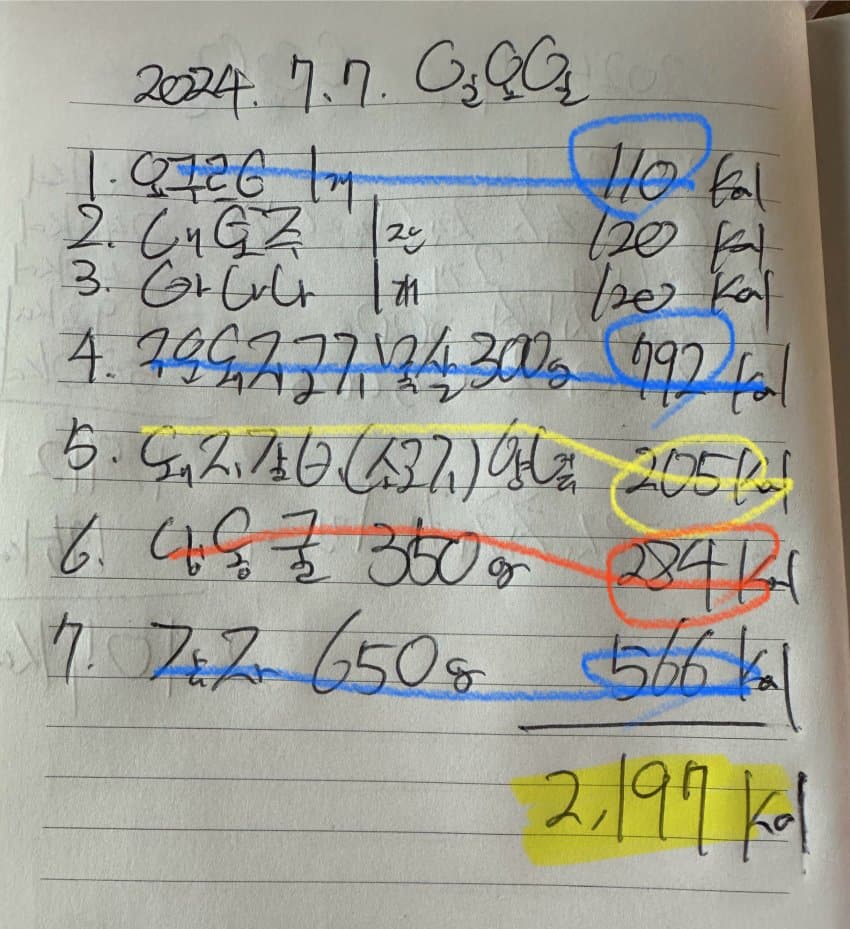 2024. 7. 7. 일요일
1. 요구르트 1개 110 Kal
2. 1잔 120 Kal
3. 바나나 1개 120 Kal
4. 300g 792 Kal
5. 돼지갈비(소고기) 양념 205 Kal
6. 350g 284 Kal
7. 감자 650g 566 Kal
2,197 Kal